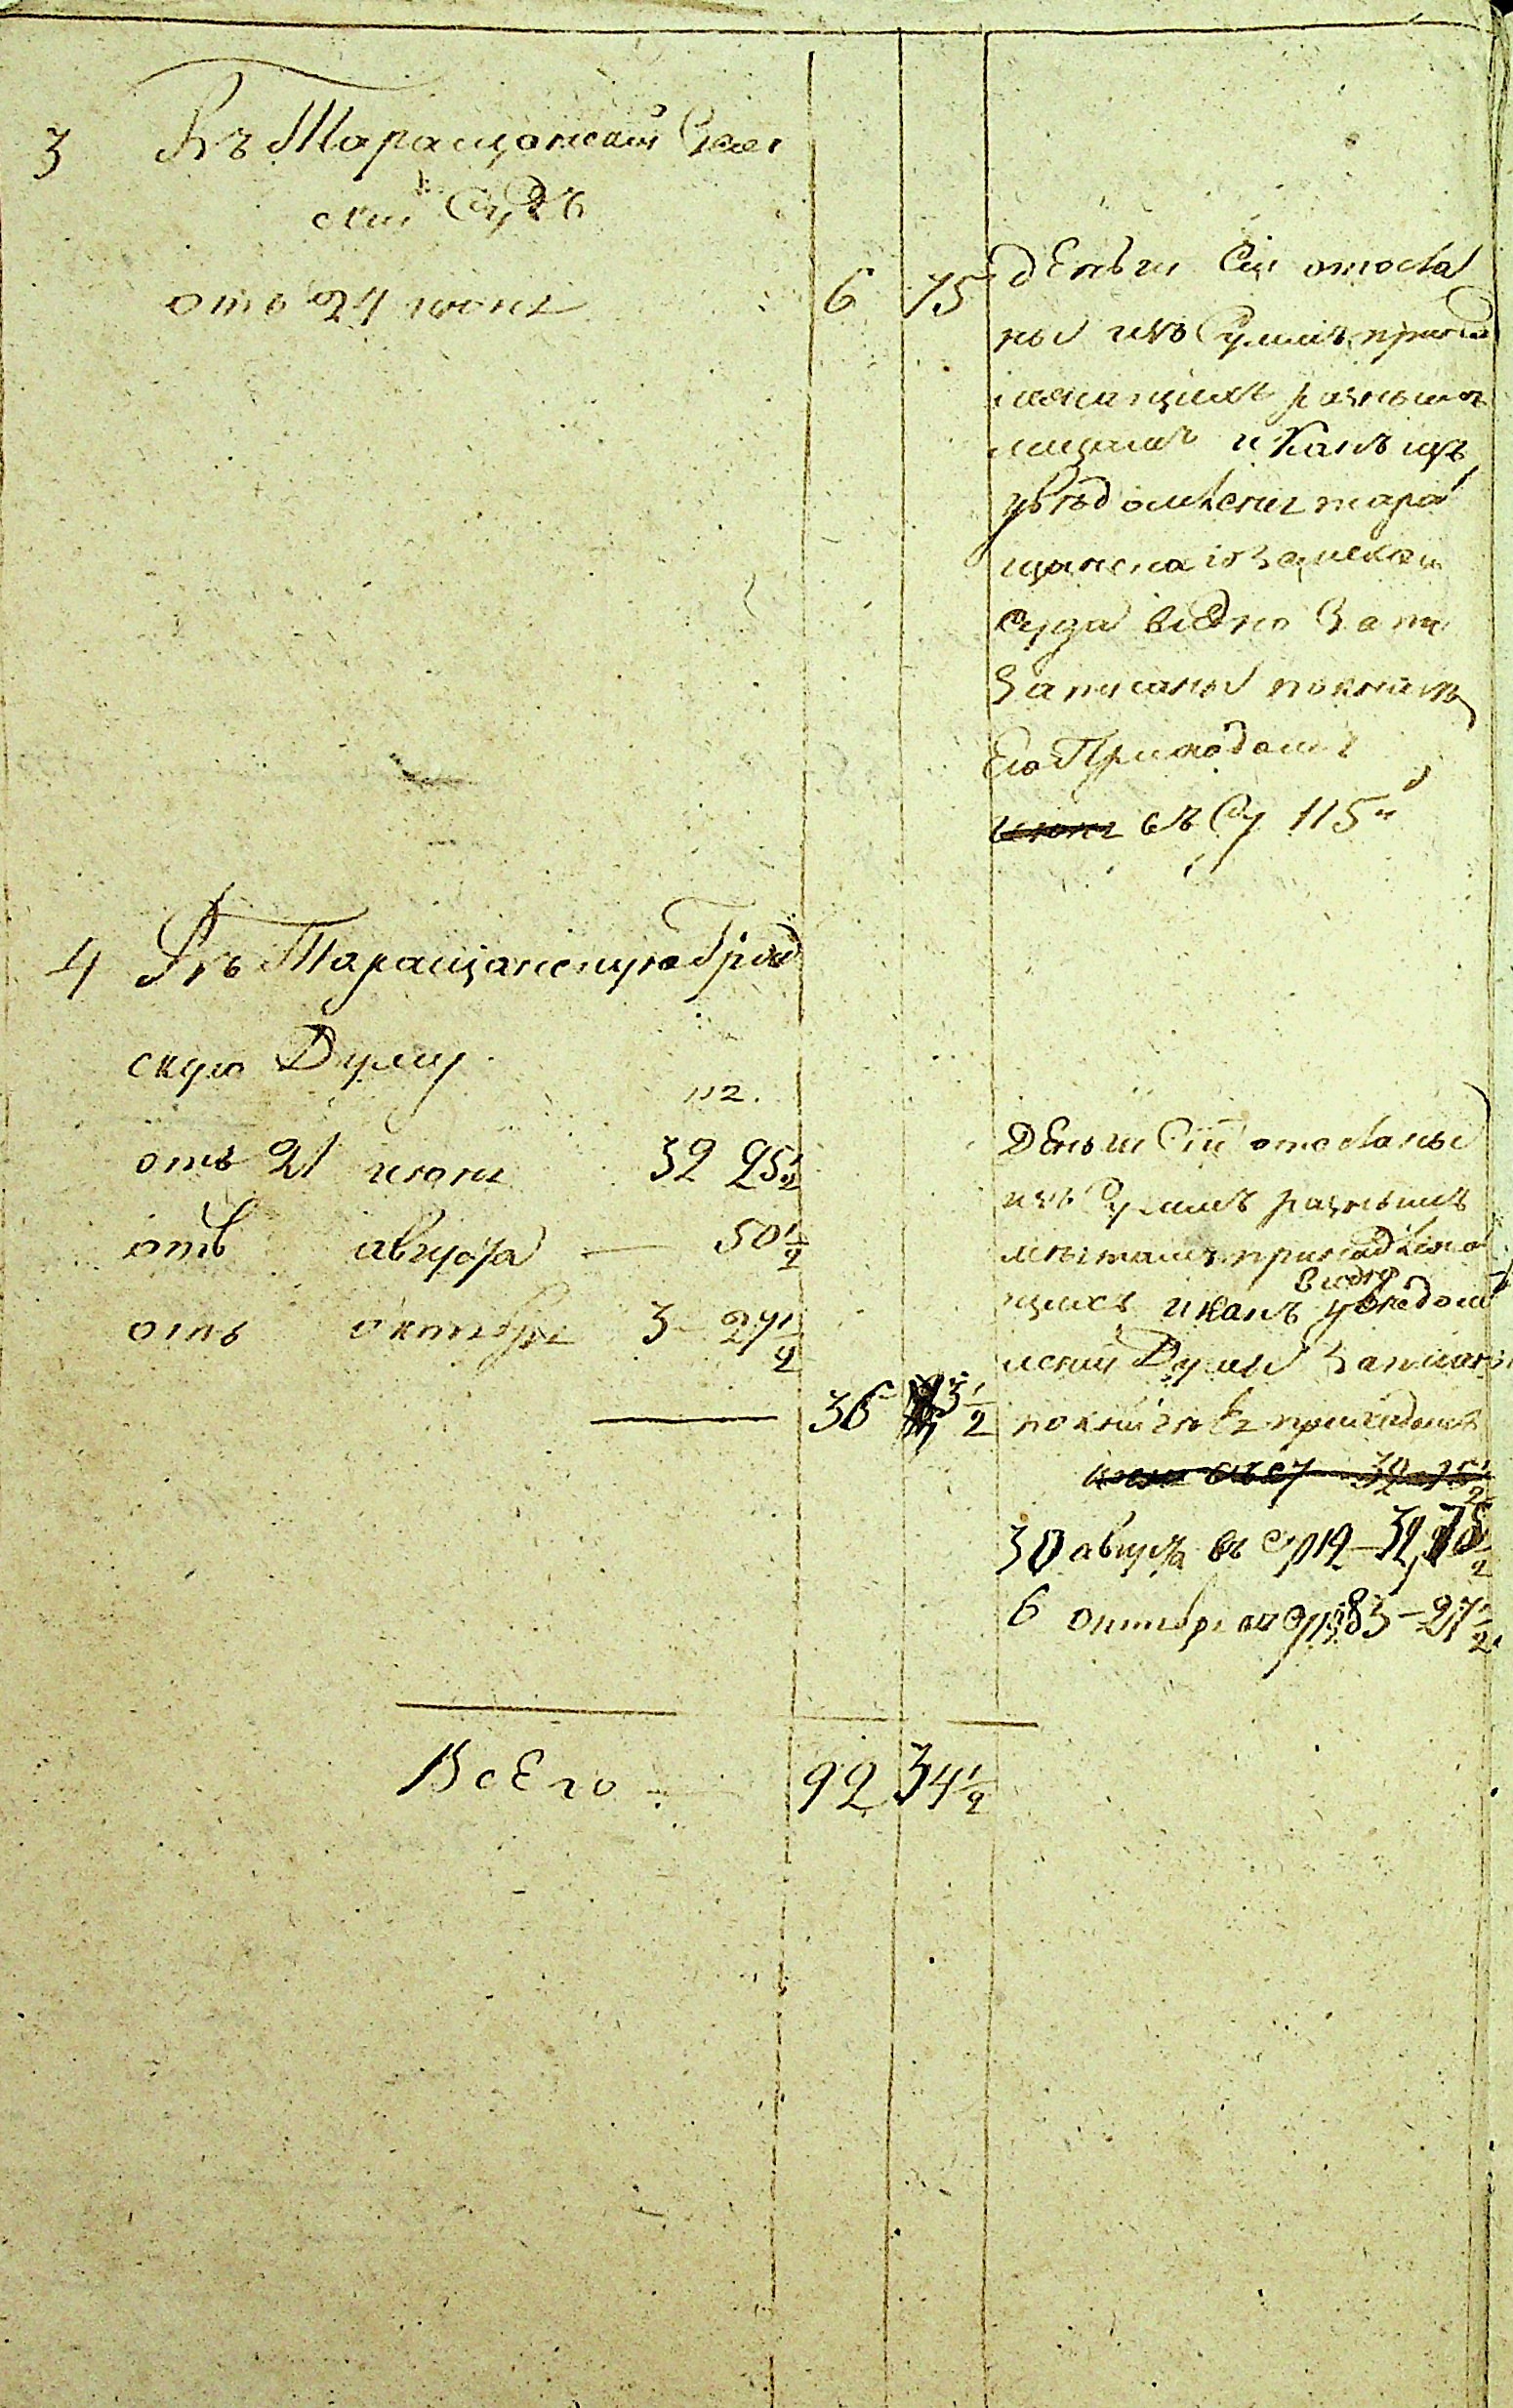 3 Въ Таращанский Зем
ский Судъ
отъ 24 июня 6 75
деньги Сии отосла
ны изъ Суммъ принад
лежащихъ разнымъ
лицамъ и какъ изъ
уведомления тара
щанскаго Земскаго
Суда видно Запи
Записаны по книгѣ
Его Приходомъ
июня съ Су 115
4 Въ Таращанскую Град
скую Думу
отъ 21 июня 32 95½
отъ августа — 50½
отъ октября 3 27½
36 73½
Деньги Сии отосланы
изъ Суммъ разнымъ
мѣстамъ принадлежа
щихъ и какъ видно уведом
лении Думы Записаны
по книгѣ Ея приходомъ
30 августа въ 32, 75½
6 октября 83 — 27½
Всего 92 34½